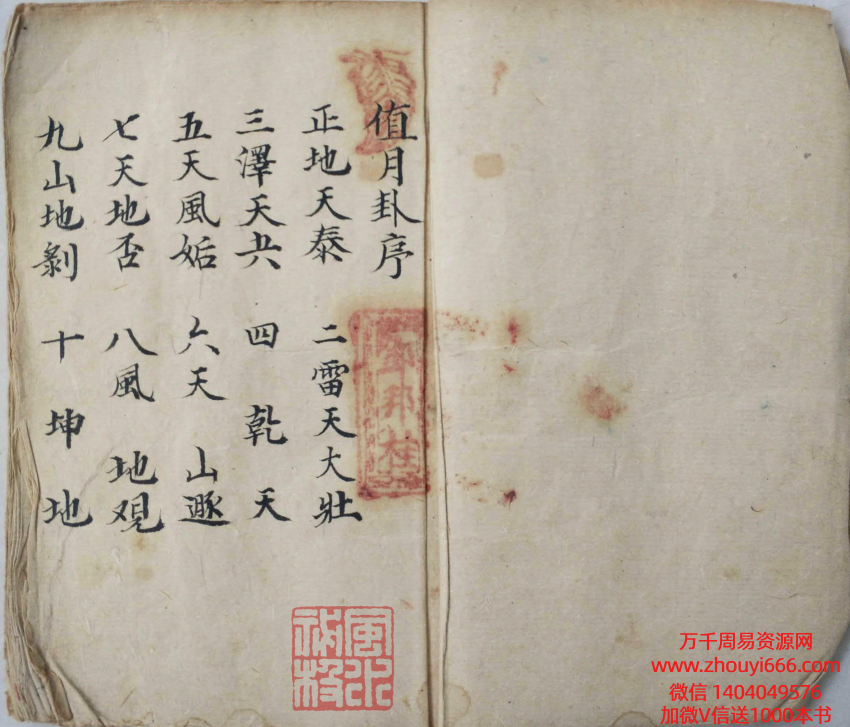 值月卦序
正地天泰 二雷天大壯
三澤天夬 四乾天
五天風姤 六天山遯
七天地否 八風地观
九山地剝 十坤地
風水
秘授
万千周易资源网
www.zhouyi666.com
微信 1404049576
加微V信送1000本书